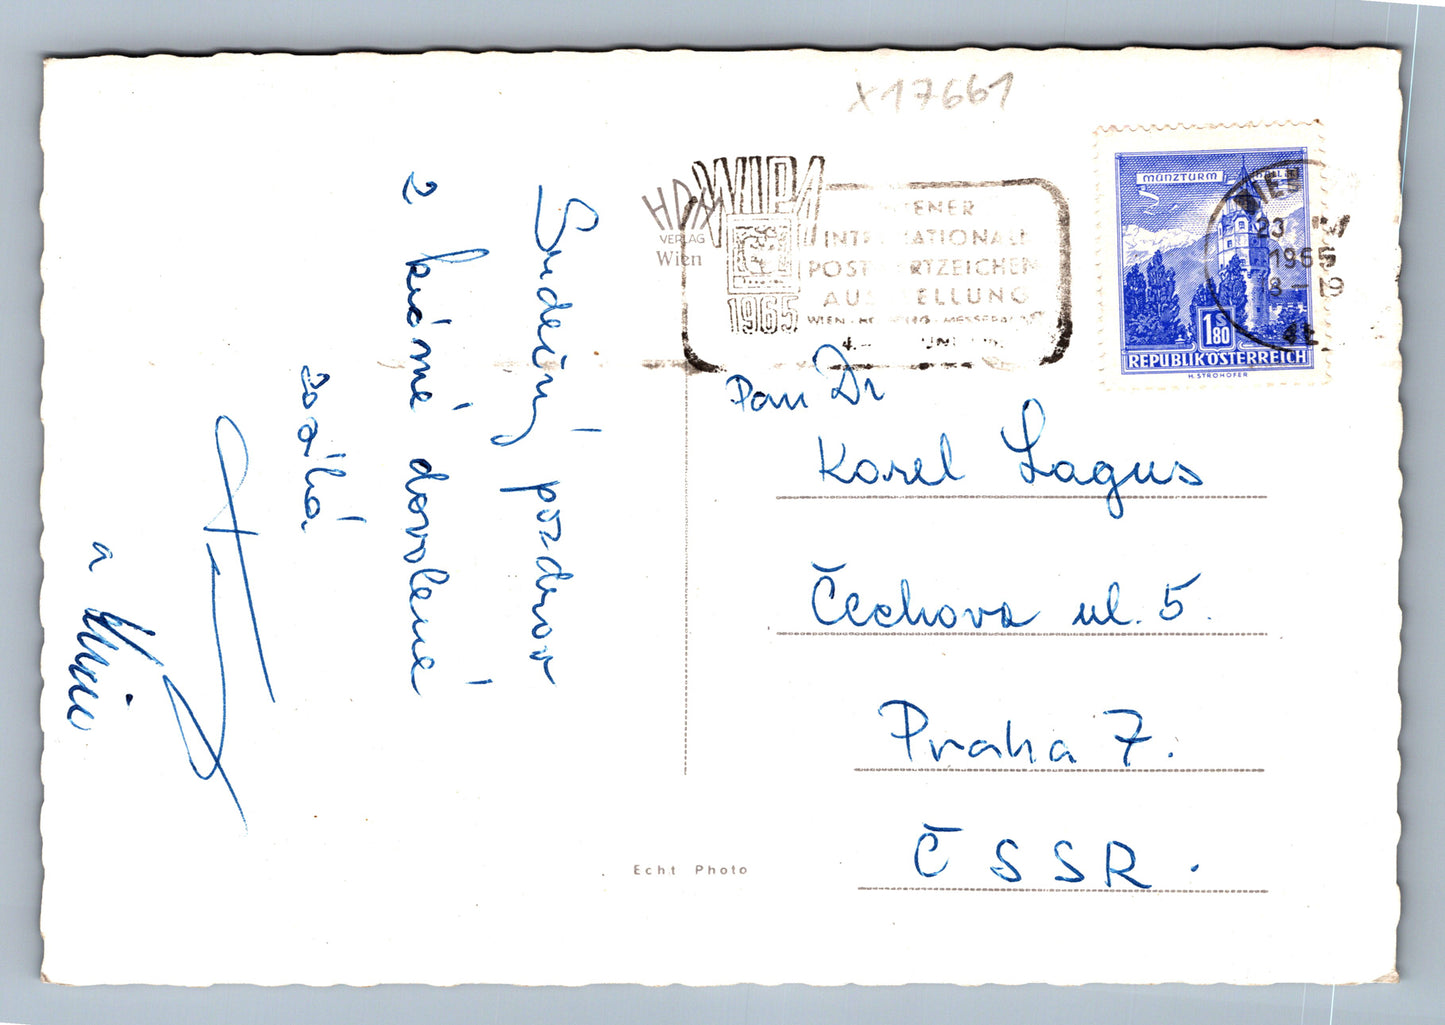 x17661
HDH
VERLAG
Wien
WIPA
1965
WIENER
INTERNATIONALE
POSTWERTZEICHEN
AUSSTELLUNG
4.
WIEN
23
1965
18-19
MÜNZTURM
1.80
REPUBLIK ÖSTERREICH
H. STROHOFER
Srdečný pozdrav
z krásné dovolené
zasílá
a
Pan Dr
Karel Lagus
Čechova ul. 5.
Praha 7.
ČSSR.
Echt Photo